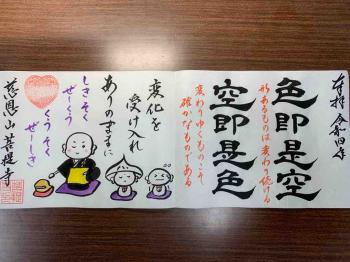 奉拝 令和四年
色即是空
形あるものは変わり続ける
空即是色
変わりゆくものこそ
確かなものである
変化を
受け入れ
ありのままに
しき そく
ぜーくう
くう そく
ぜーしき
慈恩山菩提寺